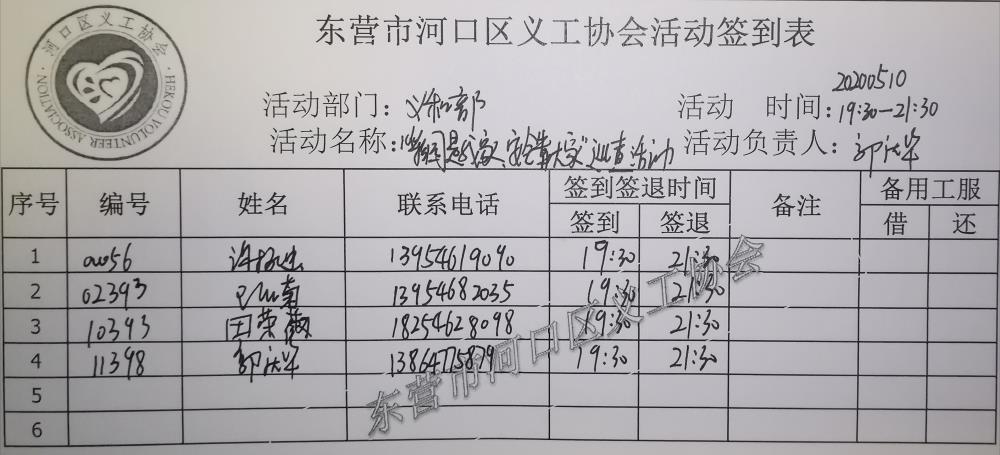 东营市河口区义工协会活动签到表
河口区义工协会
HEKOU VOLUNTEER ASSOCIATION
20200510
活动部门：义和部 活动 时间：19:30—21:30
活动名称："我是党义 安靠大家"巡查活动 活动负责人：郭庆军
序号 编号 姓名 联系电话 签到签退时间 备注 备用工服
签到 签退 借 还
1 13954619090 19:30 21:30
2 02393 13954682035 19:30 21:30
3 10393 田荣微 18254628098 19:30 21:30
4 11398 郭庆军 13864775879 19:30 21:30
5
6
东营市河口区义工协会